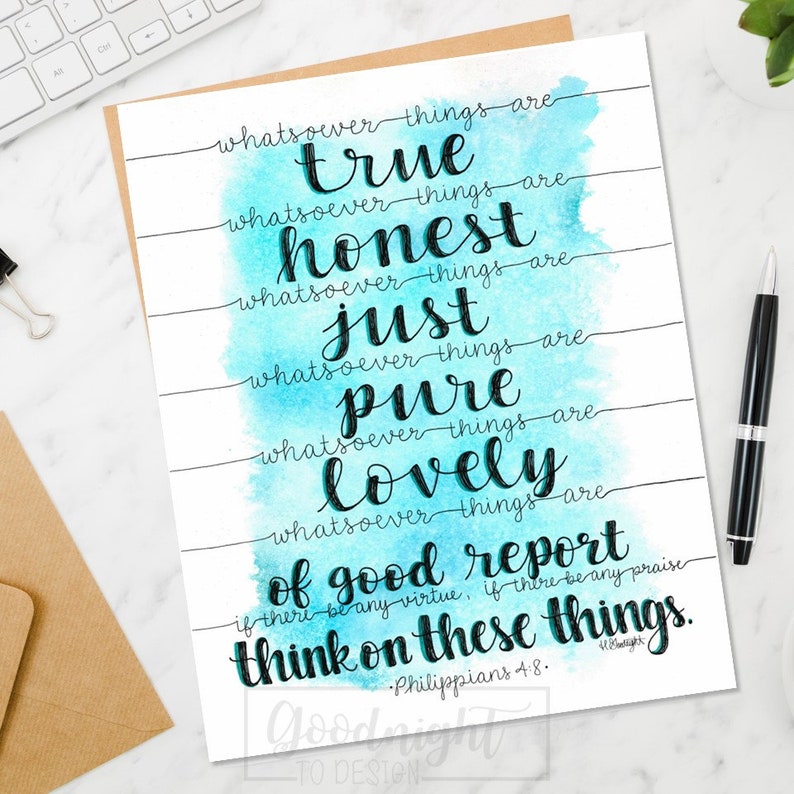 whatsoever things are
true
whatsoever things are
honest
whatsoever things are
just
whatsoever things are
pure
whatsoever things are
lovely
whatsoever things are
of good report
if there be any virtue, if there be any praise
think on these things.
H Goodnight
·Philippians 4:8·
Goodnight
TO DESIGN
Alt
Ctrl